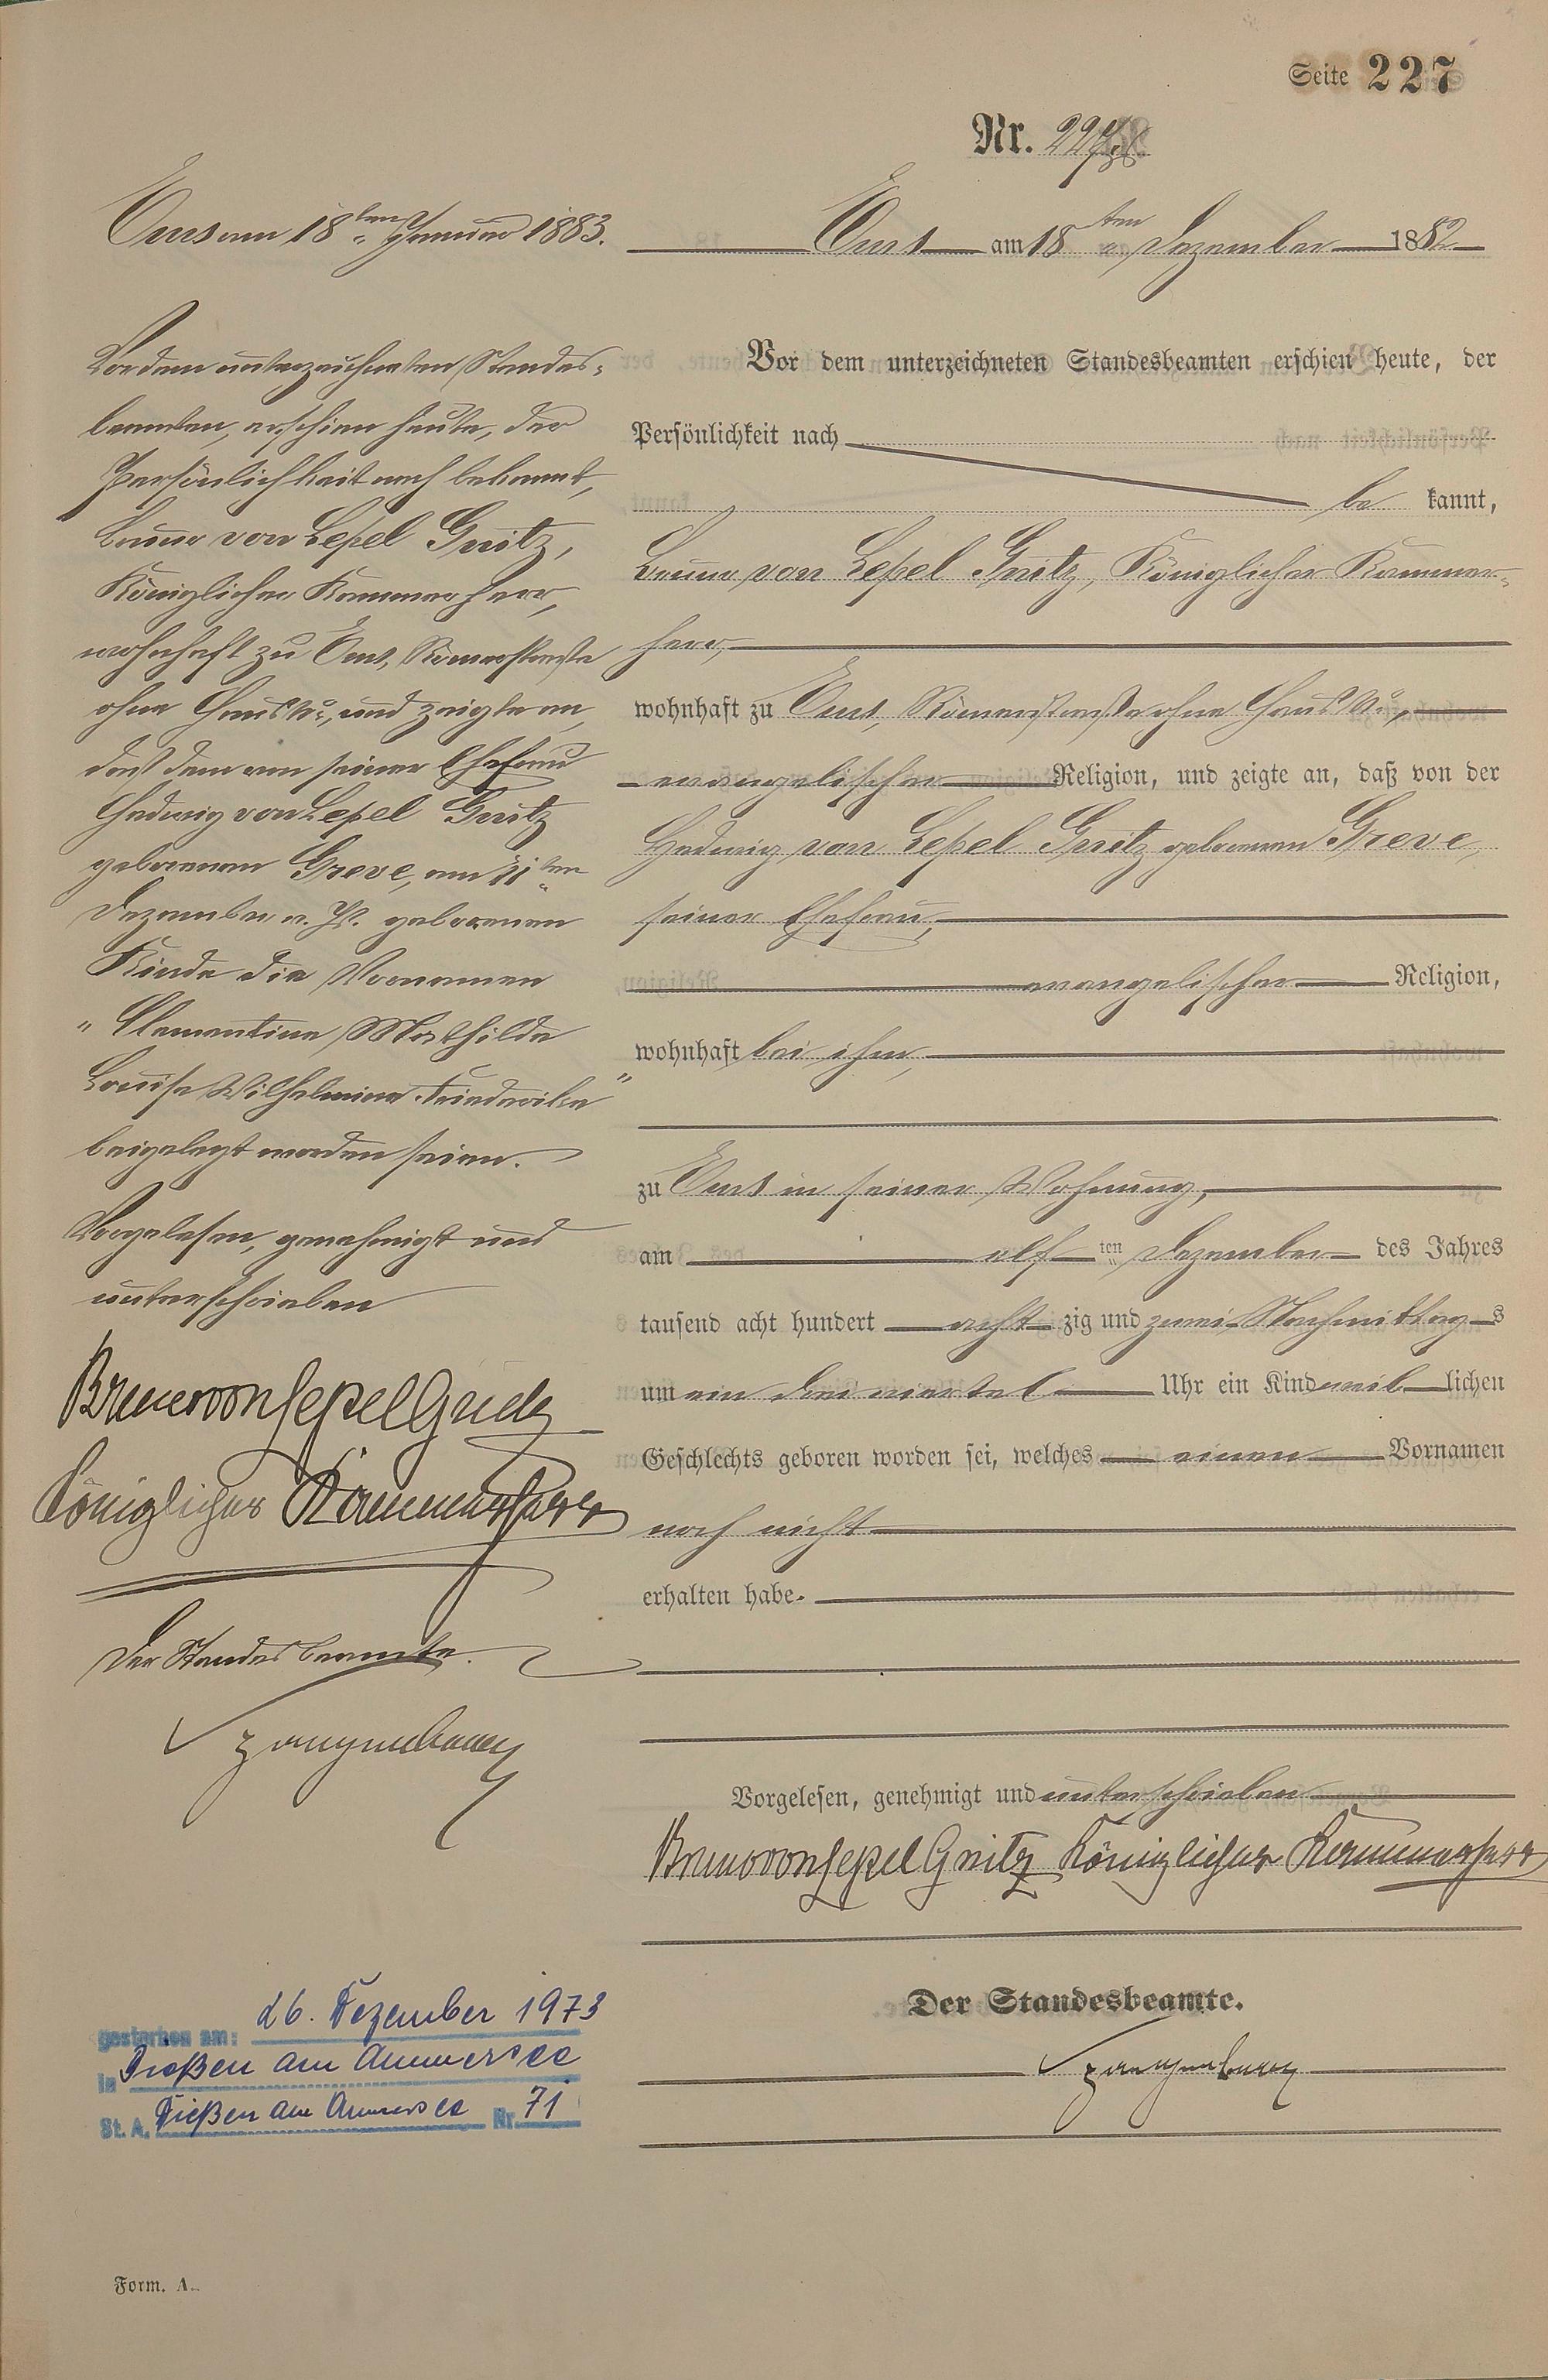 Seite 227
Nr. 227
Ems am 18ten Dezember 1882
Vor dem unterzeichneten Standesbeamten erschien heute, der
Persönlichkeit nach
be kannt,
Bruno von Lepel Gnitz, Königlicher Kammer-
herr,
wohnhaft zu Ems, Römerstraße ohne Haus No.,
evangelischer Religion, und zeigte an, daß von der
Hedwig von Lepel Gnitz geborenen Greve,
seiner Ehefrau,
evangelischer Religion,
wohnhaft bei ihm,
zu Ems in seiner Wohnung,
am elf ten Dezember des Jahres
tausend acht hundert acht zig und zwei Nachmittag s
um ein drei viertel Uhr ein Kind weib lichen
Geschlechts geboren worden sei, welches einen Vornamen
noch nicht
erhalten habe.
Vorgelesen, genehmigt und unterschrieben
Bruno von Lepel Gnitz Königlicher Kammerherr
Der Standesbeamte.
Ems am 18ten Januar 1883.
Vor dem unterzeichneten Standes-
beamten, erschien heute, der
Persönlichkeit nach bekannt,
Bruno von Lepel Gnitz,
Königlicher Kammerherr,
wohnhaft zu Ems, Römerstraße
ohne Haus No., und zeigte an,
daß dem von seiner Ehefrau
Hedwig von Lepel Gnitz
geborenen Greve, am 11ten
Dezember v. Js. geborenen
Kinde die Vornamen
"Clementine Mathilde
Louise Wilhelmine Friederike"
beigelegt worden seien.
Vorgelesen, genehmigt und
unterschrieben
Bruno von Lepel Gnitz
Königlicher Kammerherr
Der Standesbeamte.
gestorben am: 26. Dezember 1973
in Dießen am Ammersee
St. A. Dießen am Ammersee Nr. 71
Form. A.